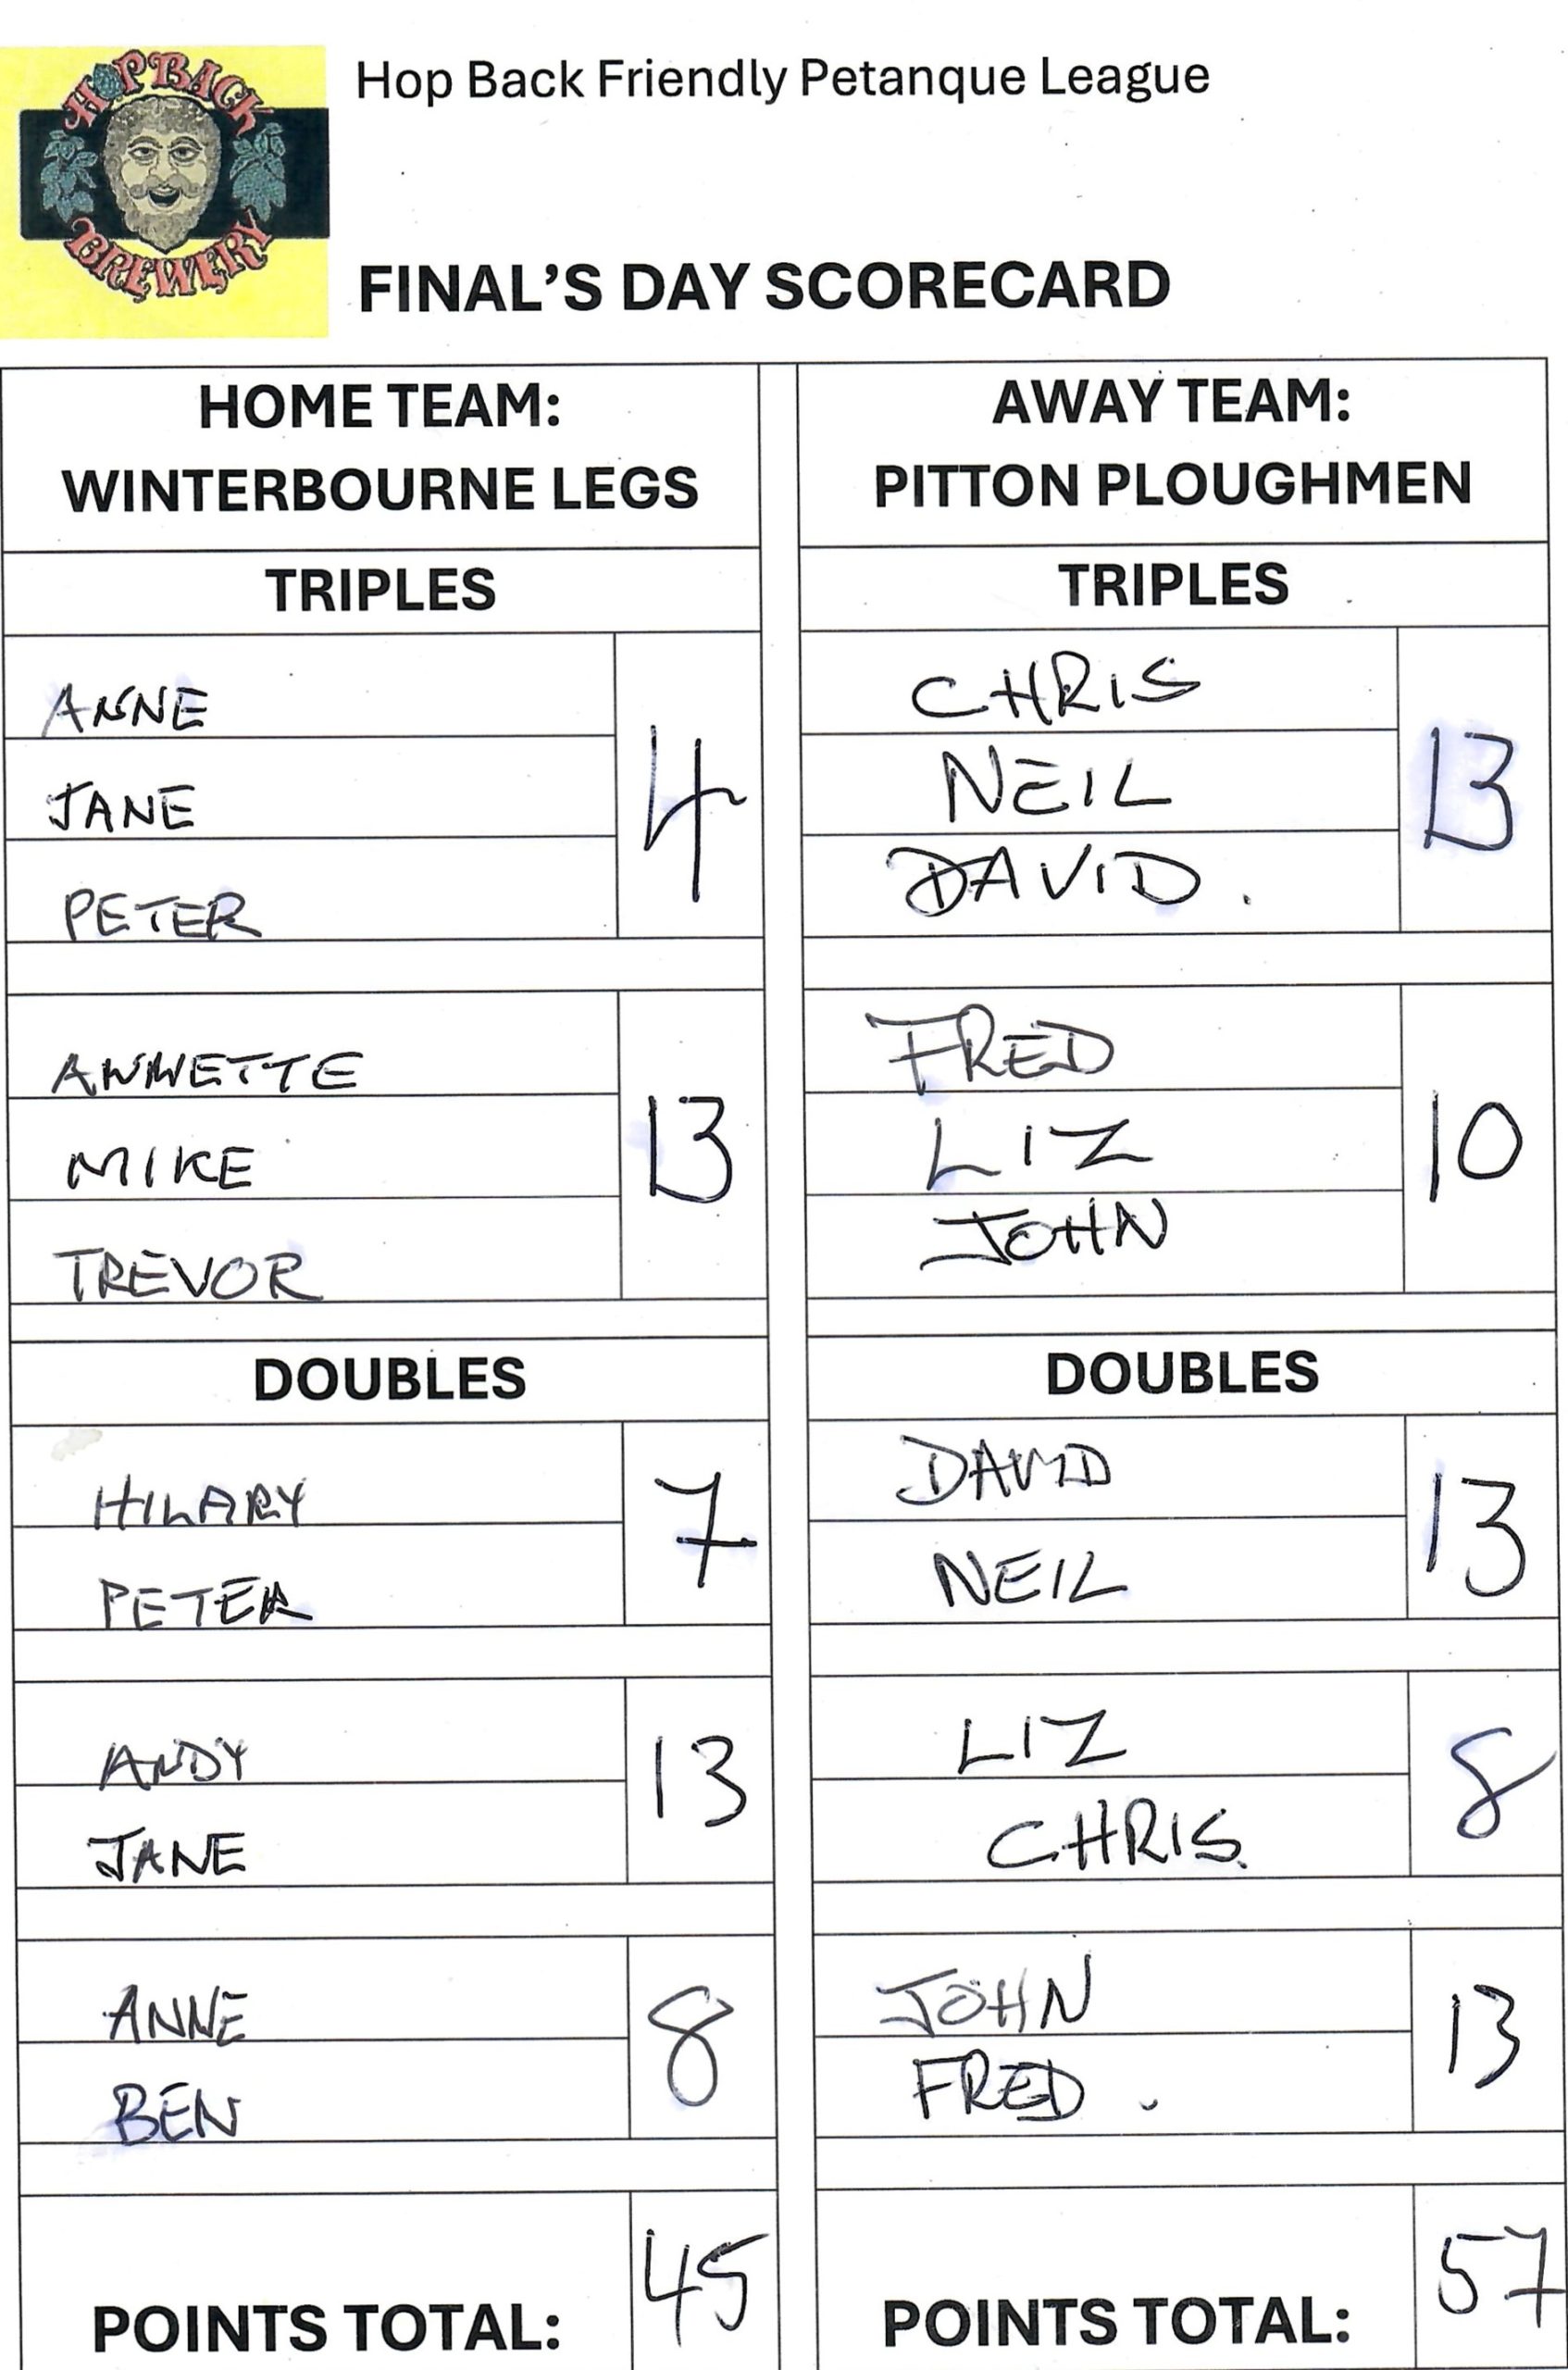 HOP BACK
BREWERY
Hop Back Friendly Petanque League
FINAL'S DAY SCORECARD
HOME TEAM:
WINTERBOURNE LEGS
TRIPLES
ANNE
JANE
PETER
4
ANNETTE
MIKE
TREVOR
13
DOUBLES
HILARY
PETER
7
ANDY
JANE
13
ANNE
BEN
8
POINTS TOTAL:
45
AWAY TEAM:
PITTON PLOUGHMEN
TRIPLES
CHRIS
NEIL
DAVID.
13
FRED
LIZ
JOHN
10
DOUBLES
DAVID
NEIL
13
LIZ
CHRIS.
8
JOHN
FRED.
13
POINTS TOTAL:
57